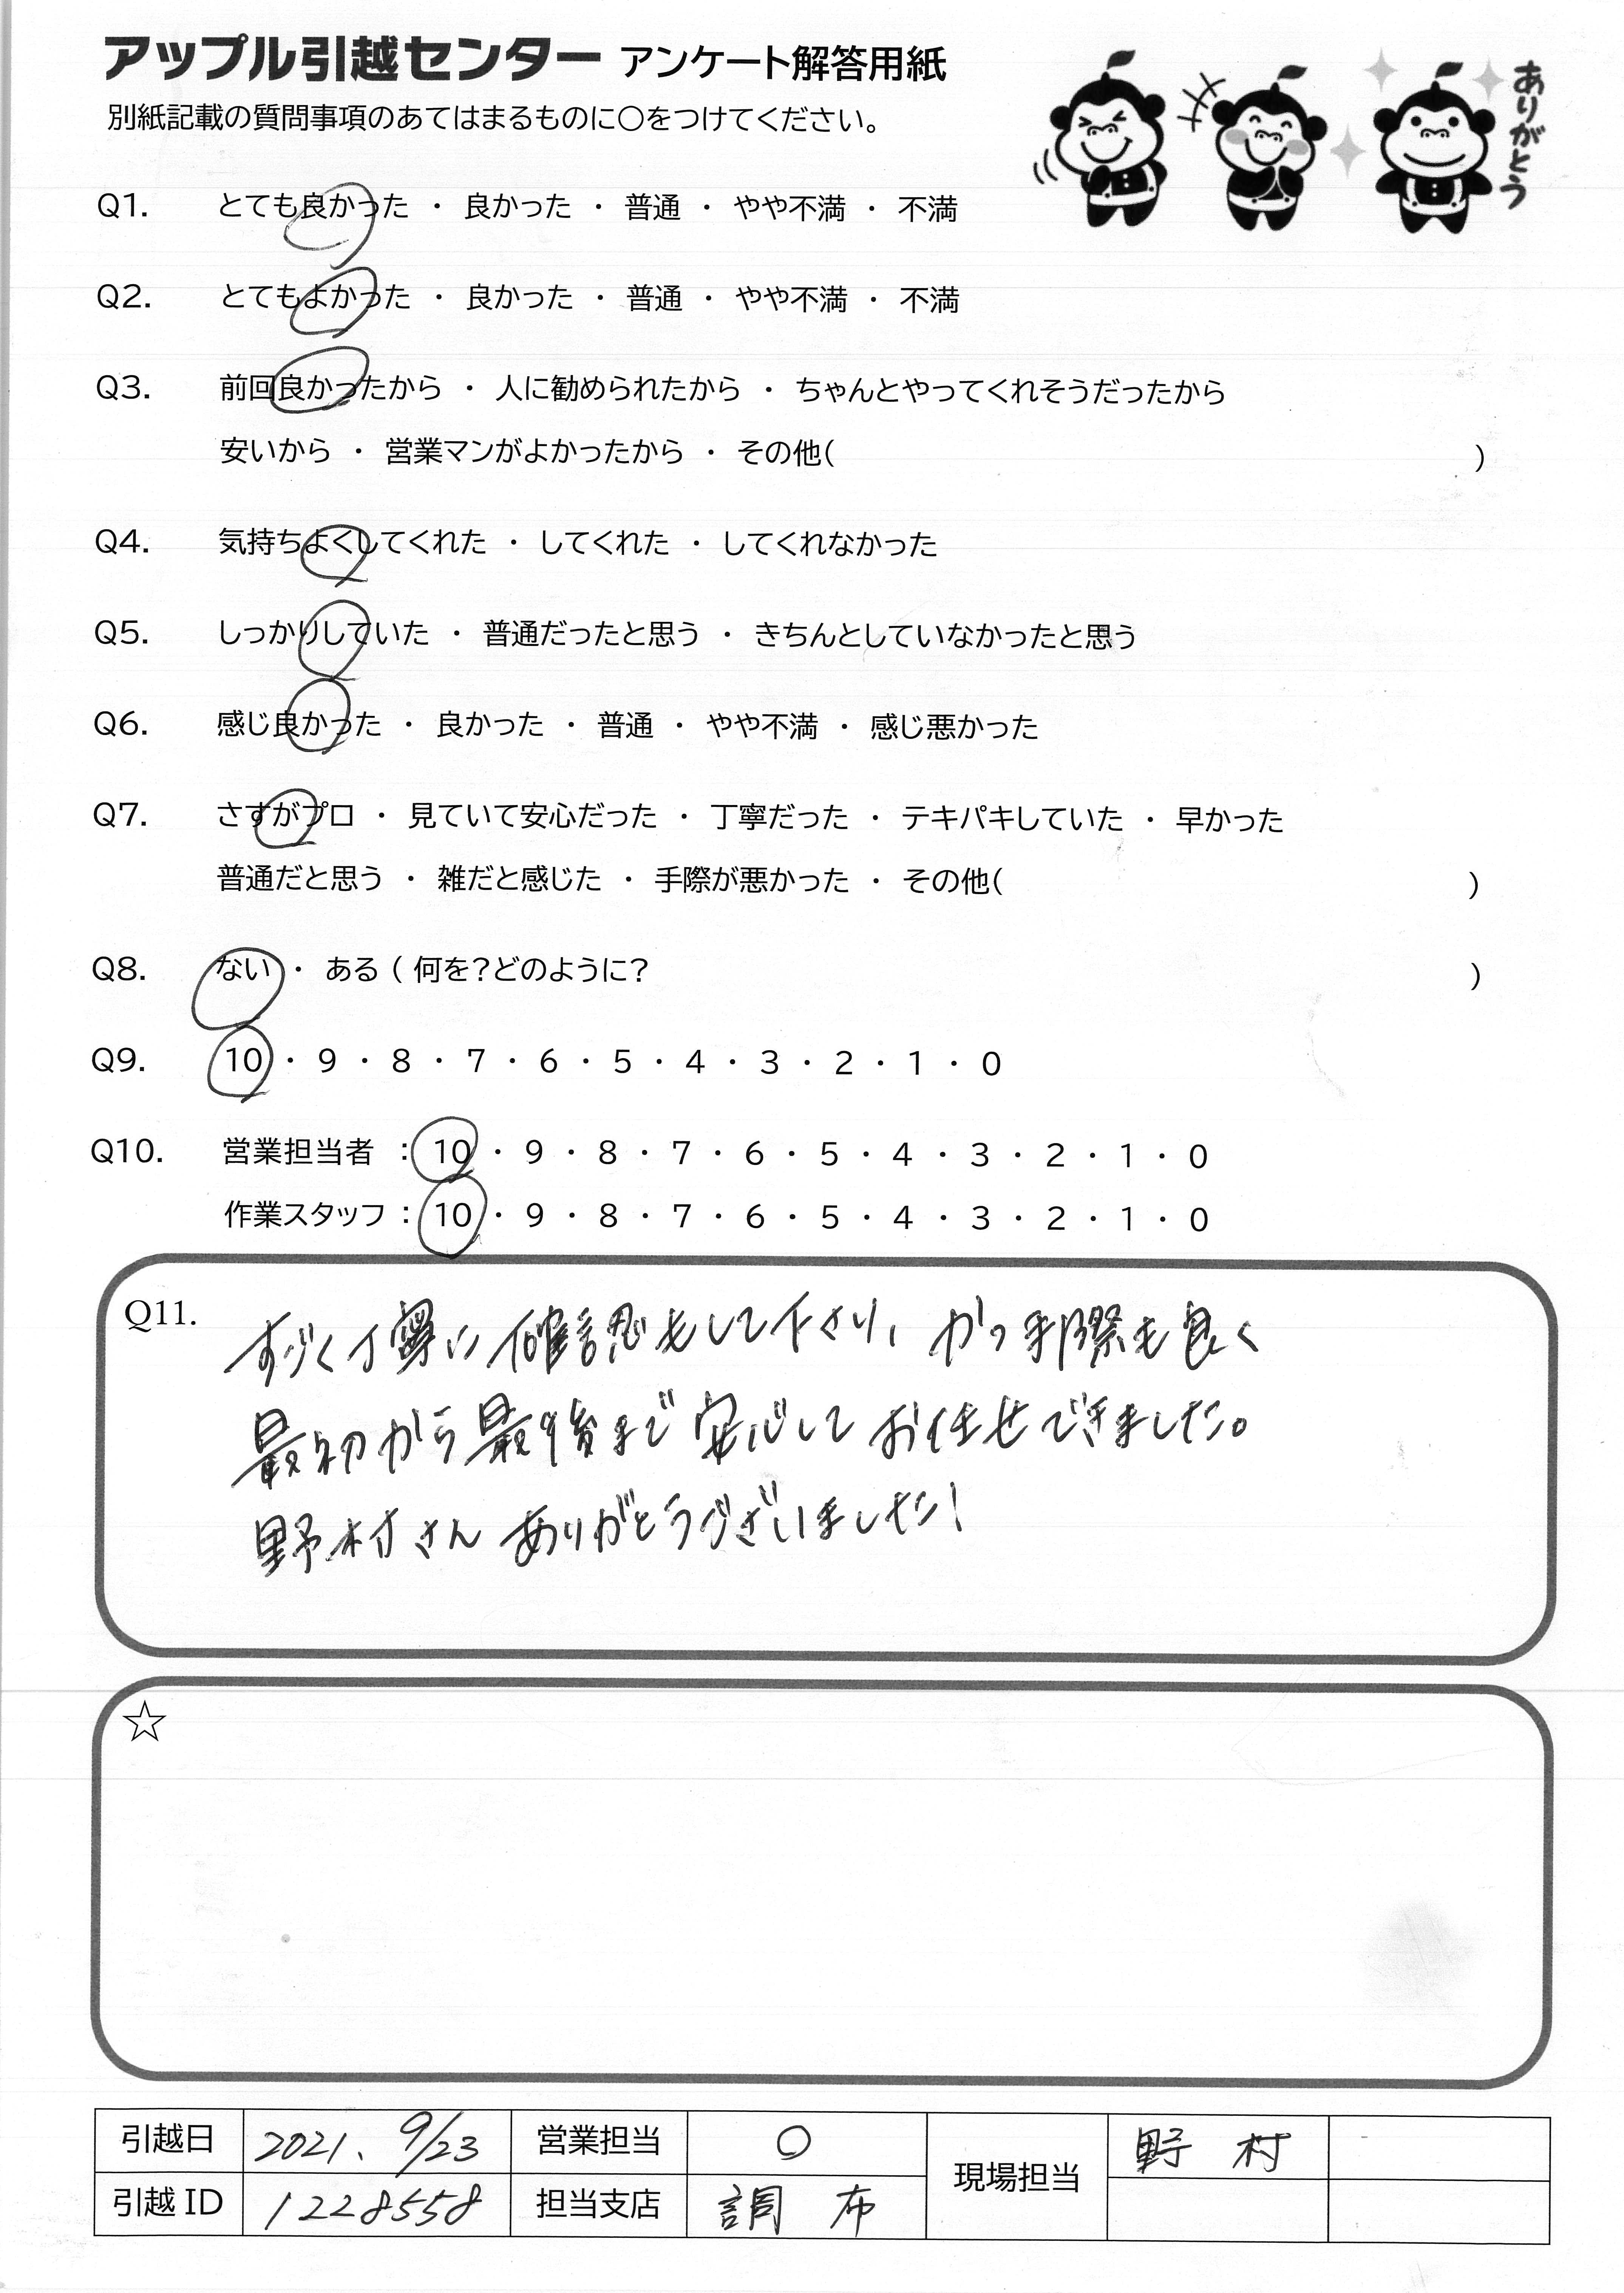 アップル引越センター アンケート解答用紙
別紙記載の質問事項のあてはまるものに○をつけてください。
ありがとう
Q1. とても良かった ・ 良かった ・ 普通 ・ やや不満 ・ 不満
Q2. とてもよかった ・ 良かった ・ 普通 ・ やや不満 ・ 不満
Q3. 前回良かったから ・ 人に勧められたから ・ ちゃんとやってくれそうだったから
安いから ・ 営業マンがよかったから ・ その他( )
Q4. 気持ちよくしてくれた ・ してくれた ・ してくれなかった
Q5. しっかりしていた ・ 普通だったと思う ・ きちんとしていなかったと思う
Q6. 感じ良かった ・ 良かった ・ 普通 ・ やや不満 ・ 感じ悪かった
Q7. さすがプロ ・ 見ていて安心だった ・ 丁寧だった ・ テキパキしていた ・ 早かった
普通だと思う ・ 雑だと感じた ・ 手際が悪かった ・ その他( )
Q8. ない ・ ある ( 何を?どのように? )
Q9. 10 ・ 9 ・ 8 ・ 7 ・ 6 ・ 5 ・ 4 ・ 3 ・ 2 ・ 1 ・ 0
Q10. 営業担当者 : 10 ・ 9 ・ 8 ・ 7 ・ 6 ・ 5 ・ 4 ・ 3 ・ 2 ・ 1 ・ 0
作業スタッフ : 10 ・ 9 ・ 8 ・ 7 ・ 6 ・ 5 ・ 4 ・ 3 ・ 2 ・ 1 ・ 0
Q11. すごく丁寧に確認もして下さり、かつ手際も良く
最初から最後まで安心してお任せできました。
野村さん ありがとうございました!
☆
引越日 2021. 9/23 営業担当 ○ 現場担当 野 村
引越 ID 1228558 担当支店 調 布